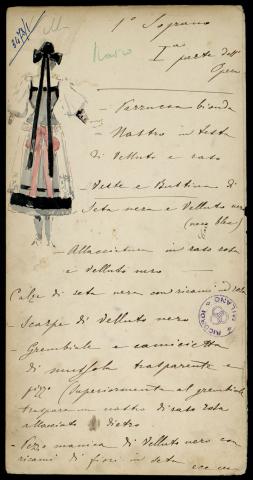 1° Soprano
Iª parte dell'
Opera
- Parrucca bionda
- Nastro in testa
di velluto e raso
Veste e Bustina di
Seta nera e velluto nero
- Allacciatura in raso rosa
e velluto nero
Calze di seta nera con ricami in rosa
- Scarpe di velluto nero
- Grembiale e camicietta
di mussola trasparente e
pizzo (Superiormente al grembiale
nastro di raso rosa
allacciato dietro
- Pezzo manica di velluto nero con
ricami di fiori in seta ecc ecc
G. RICORDI & C. MILANO